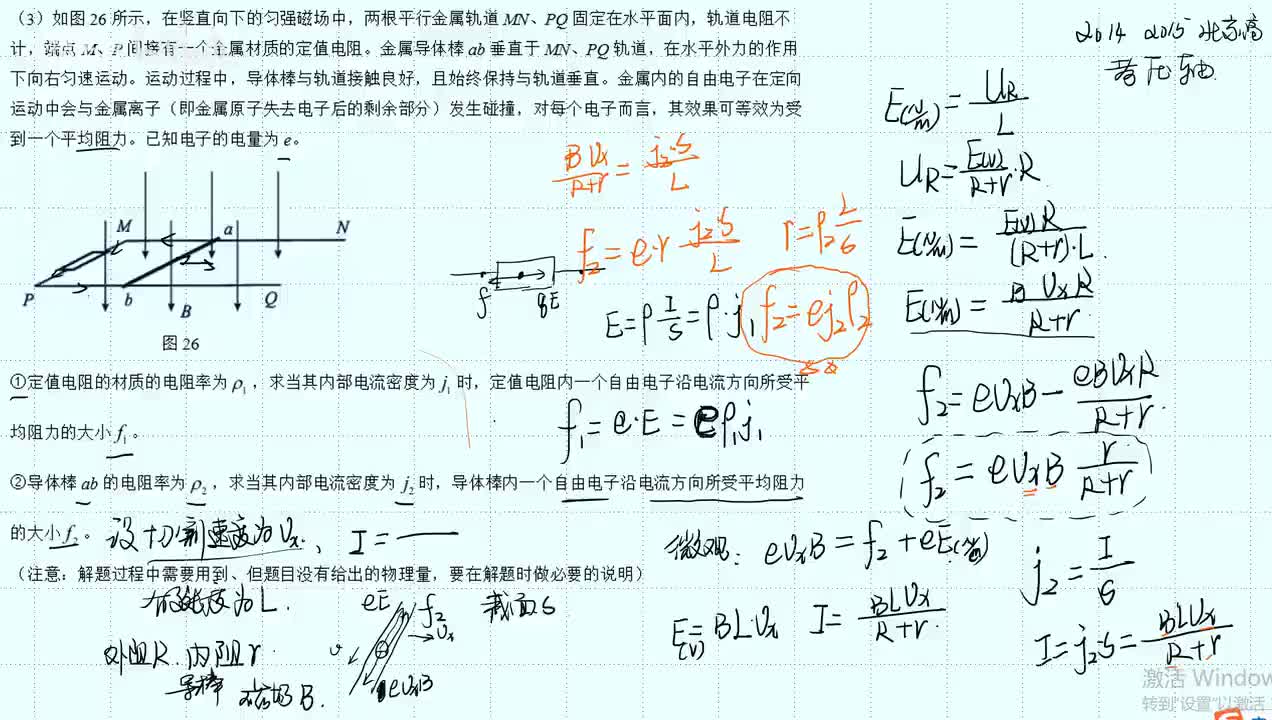 （3）如图 26 所示，在竖直向下的匀强磁场中，两根平行金属轨道 MN、PQ 固定在水平面内，轨道电阻不
计，端点 M、P 间接有一个金属材质的定值电阻。金属导体棒 ab 垂直于 MN、PQ 轨道，在水平外力的作用
下向右匀速运动。运动过程中，导体棒与轨道接触良好，且始终保持与轨道垂直。金属内的自由电子在定向
运动中会与金属离子（即金属原子失去电子后的剩余部分）发生碰撞，对每个电子而言，其效果可等效为受
到一个平均阻力。已知电子的电量为 e。
2014 2015 北京高
考压轴
M a N
P b B Q
图 26
f qE
BUx/(R+r) = j₂·S/L
f₂ = e·r j₂S/L
r = ρ₂ L/S
E = ρ I/S = ρ·j₁
f₂ = ej₂ρ₂
E(V/m) = U_R/L
U_R = E(V)/(R+r)·R
E(V/m) = E(V)R/((R+r)·L)
E(V/m) = BUxR/(R+r)
①定值电阻的材质的电阻率为 ρ₁，求当其内部电流密度为 j₁ 时，定值电阻内一个自由电子沿电流方向所受平
均阻力的大小 f₁。
f₁ = e·E = eρ₁j₁
f₂ = eUxB − eBUxR/(R+r)
f₂ = eUxB r/(R+r)
②导体棒 ab 的电阻率为 ρ₂，求当其内部电流密度为 j₂ 时，导体棒内一个自由电子沿电流方向所受平均阻力
的大小 f₂。
设切割速度为Ux、 I =
（注意：解题过程中需要用到、但题目没有给出的物理量，要在解题时做必要的说明）
微观： eUxB = f₂ + eE
j₂ = I/S
长度为 L.
截面S
外阻R. 内阻r
导棒 磁场 B.
eE f₂ Ux
eUxB
E(V) = BLUx
I = BLUx/(R+r)
I = j₂S = BLUx/(R+r)
激活 Window
转到"设置"以激活